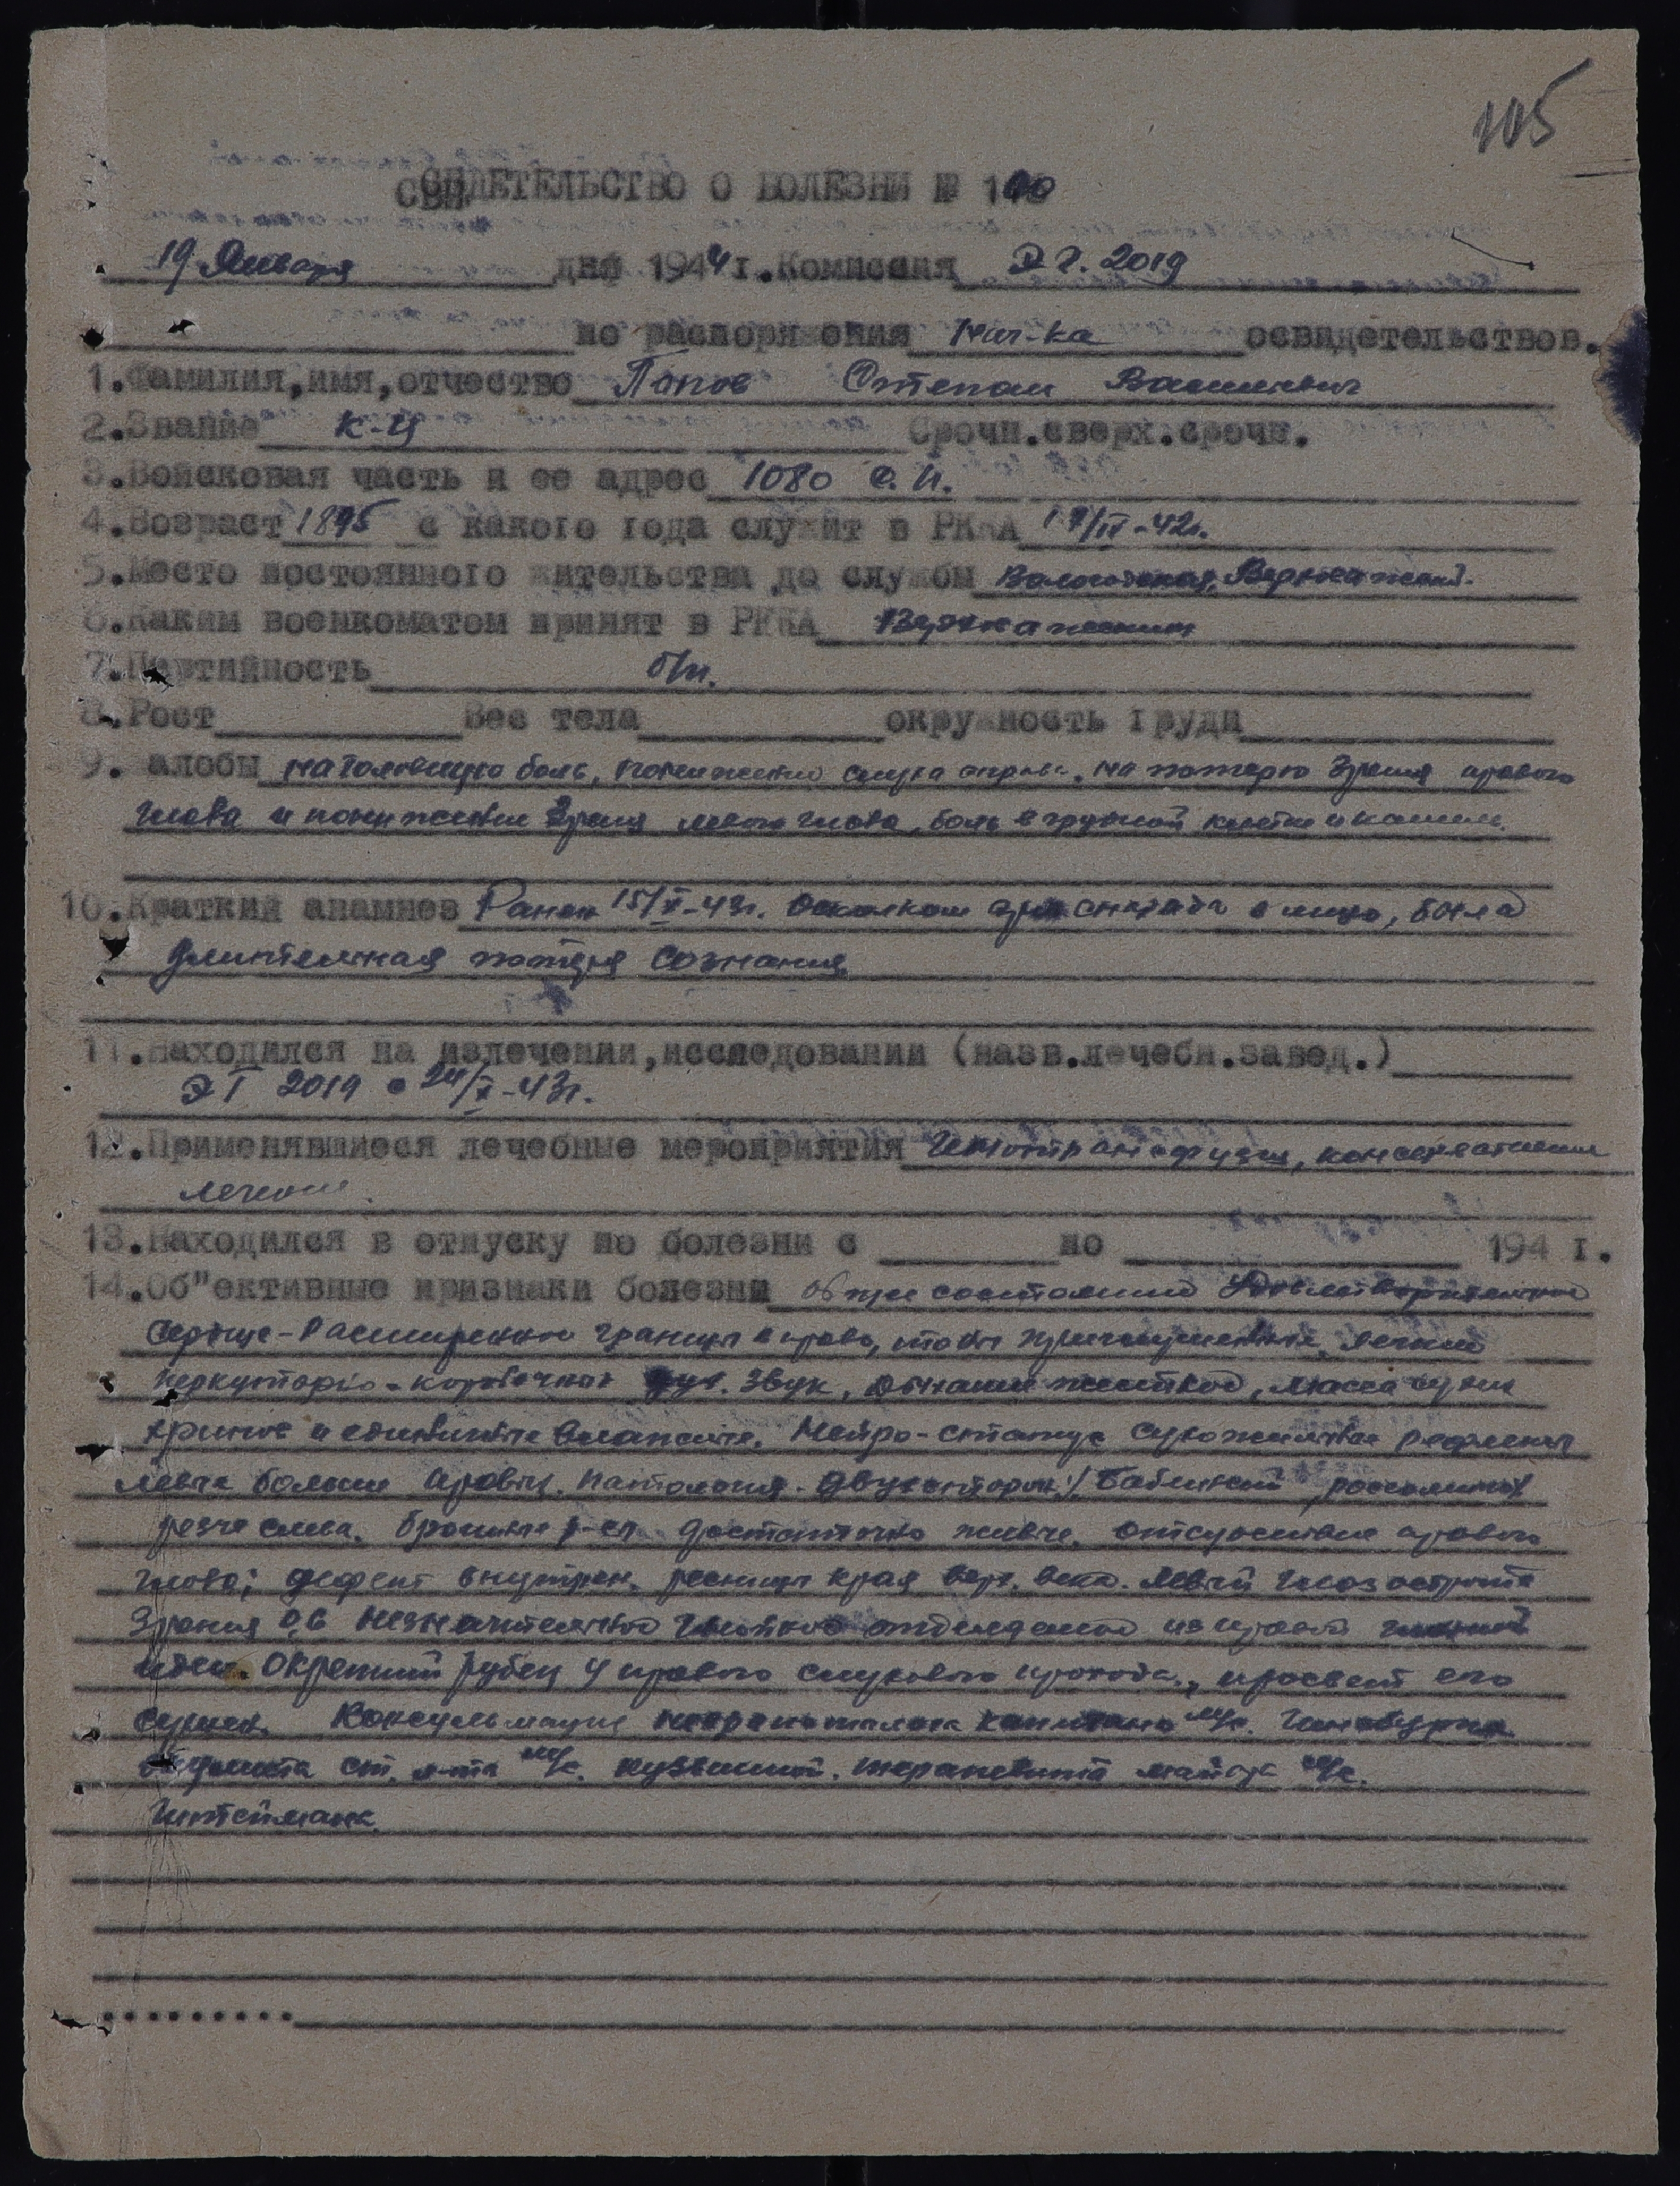 105
СВИДЕТЕЛЬСТВО О БОЛЕЗНИ №
19 Января дня 1944 г. Комиссия Э.Г. 2019
по распоряжения Нач-ка освидетельствов.
1. Фамилия, имя, отчество Попов Степан Васильевич
2. Звание к-ц Срочн. сверх. срочн.
3. Войсковая часть и ее адрес 1080 с.п.
4. Возраст 1895 с какого года служит в РККА /IV-42г.
5. Место постоянного жительства до службы Вологодская,
6. Каким военкоматом принят в РККА
7. Партийность б/п.
8. Рост Вес тела окружность груди
9. Жалобы на головную боль, понижение слуха справа, на потерю зрения правого
глаза и понижение зрения левого глаза, боль в грудной клетке и кашель.
10. Краткий анамнез Ранен 15/X-43г. Осколком снаряда в лицо, была
длительная потеря сознания
11. Находился на излечении, исследовании (назв. лечебн. завед.)
ЭГ 2019 с 24/X-43г.
12. Применявшиеся лечебные мероприятия Гемотрансфузия, консервативное
лечение.
13. Находился в отпуску по болезни с по 194 г.
14. Об"ективные признаки болезни общее состояние удовлетворительное
Сердце - Расширение границы вправо, тоны приглушенные, легкие
перкуторно - коробочный звук, дыхание жесткое, масса сухих
хрипов и единичные влажные. Нейро-статус сухожильные рефлексы
левые больше правых. Патология. Бабинский,
резче слева. Брюшные достаточно живые. Отсутствие правого
глаза; дефект внутрен. края верх. века. Левый глаз острота
зрения 0,6 незначительное гнойное отделяемое из правой
Окрепший рубец у правого слухового прохода, просвет его
сужен. Консультация капитана м/с. Гинзбурга
окулиста ст. л-та м/с. терапевта майора м/с.